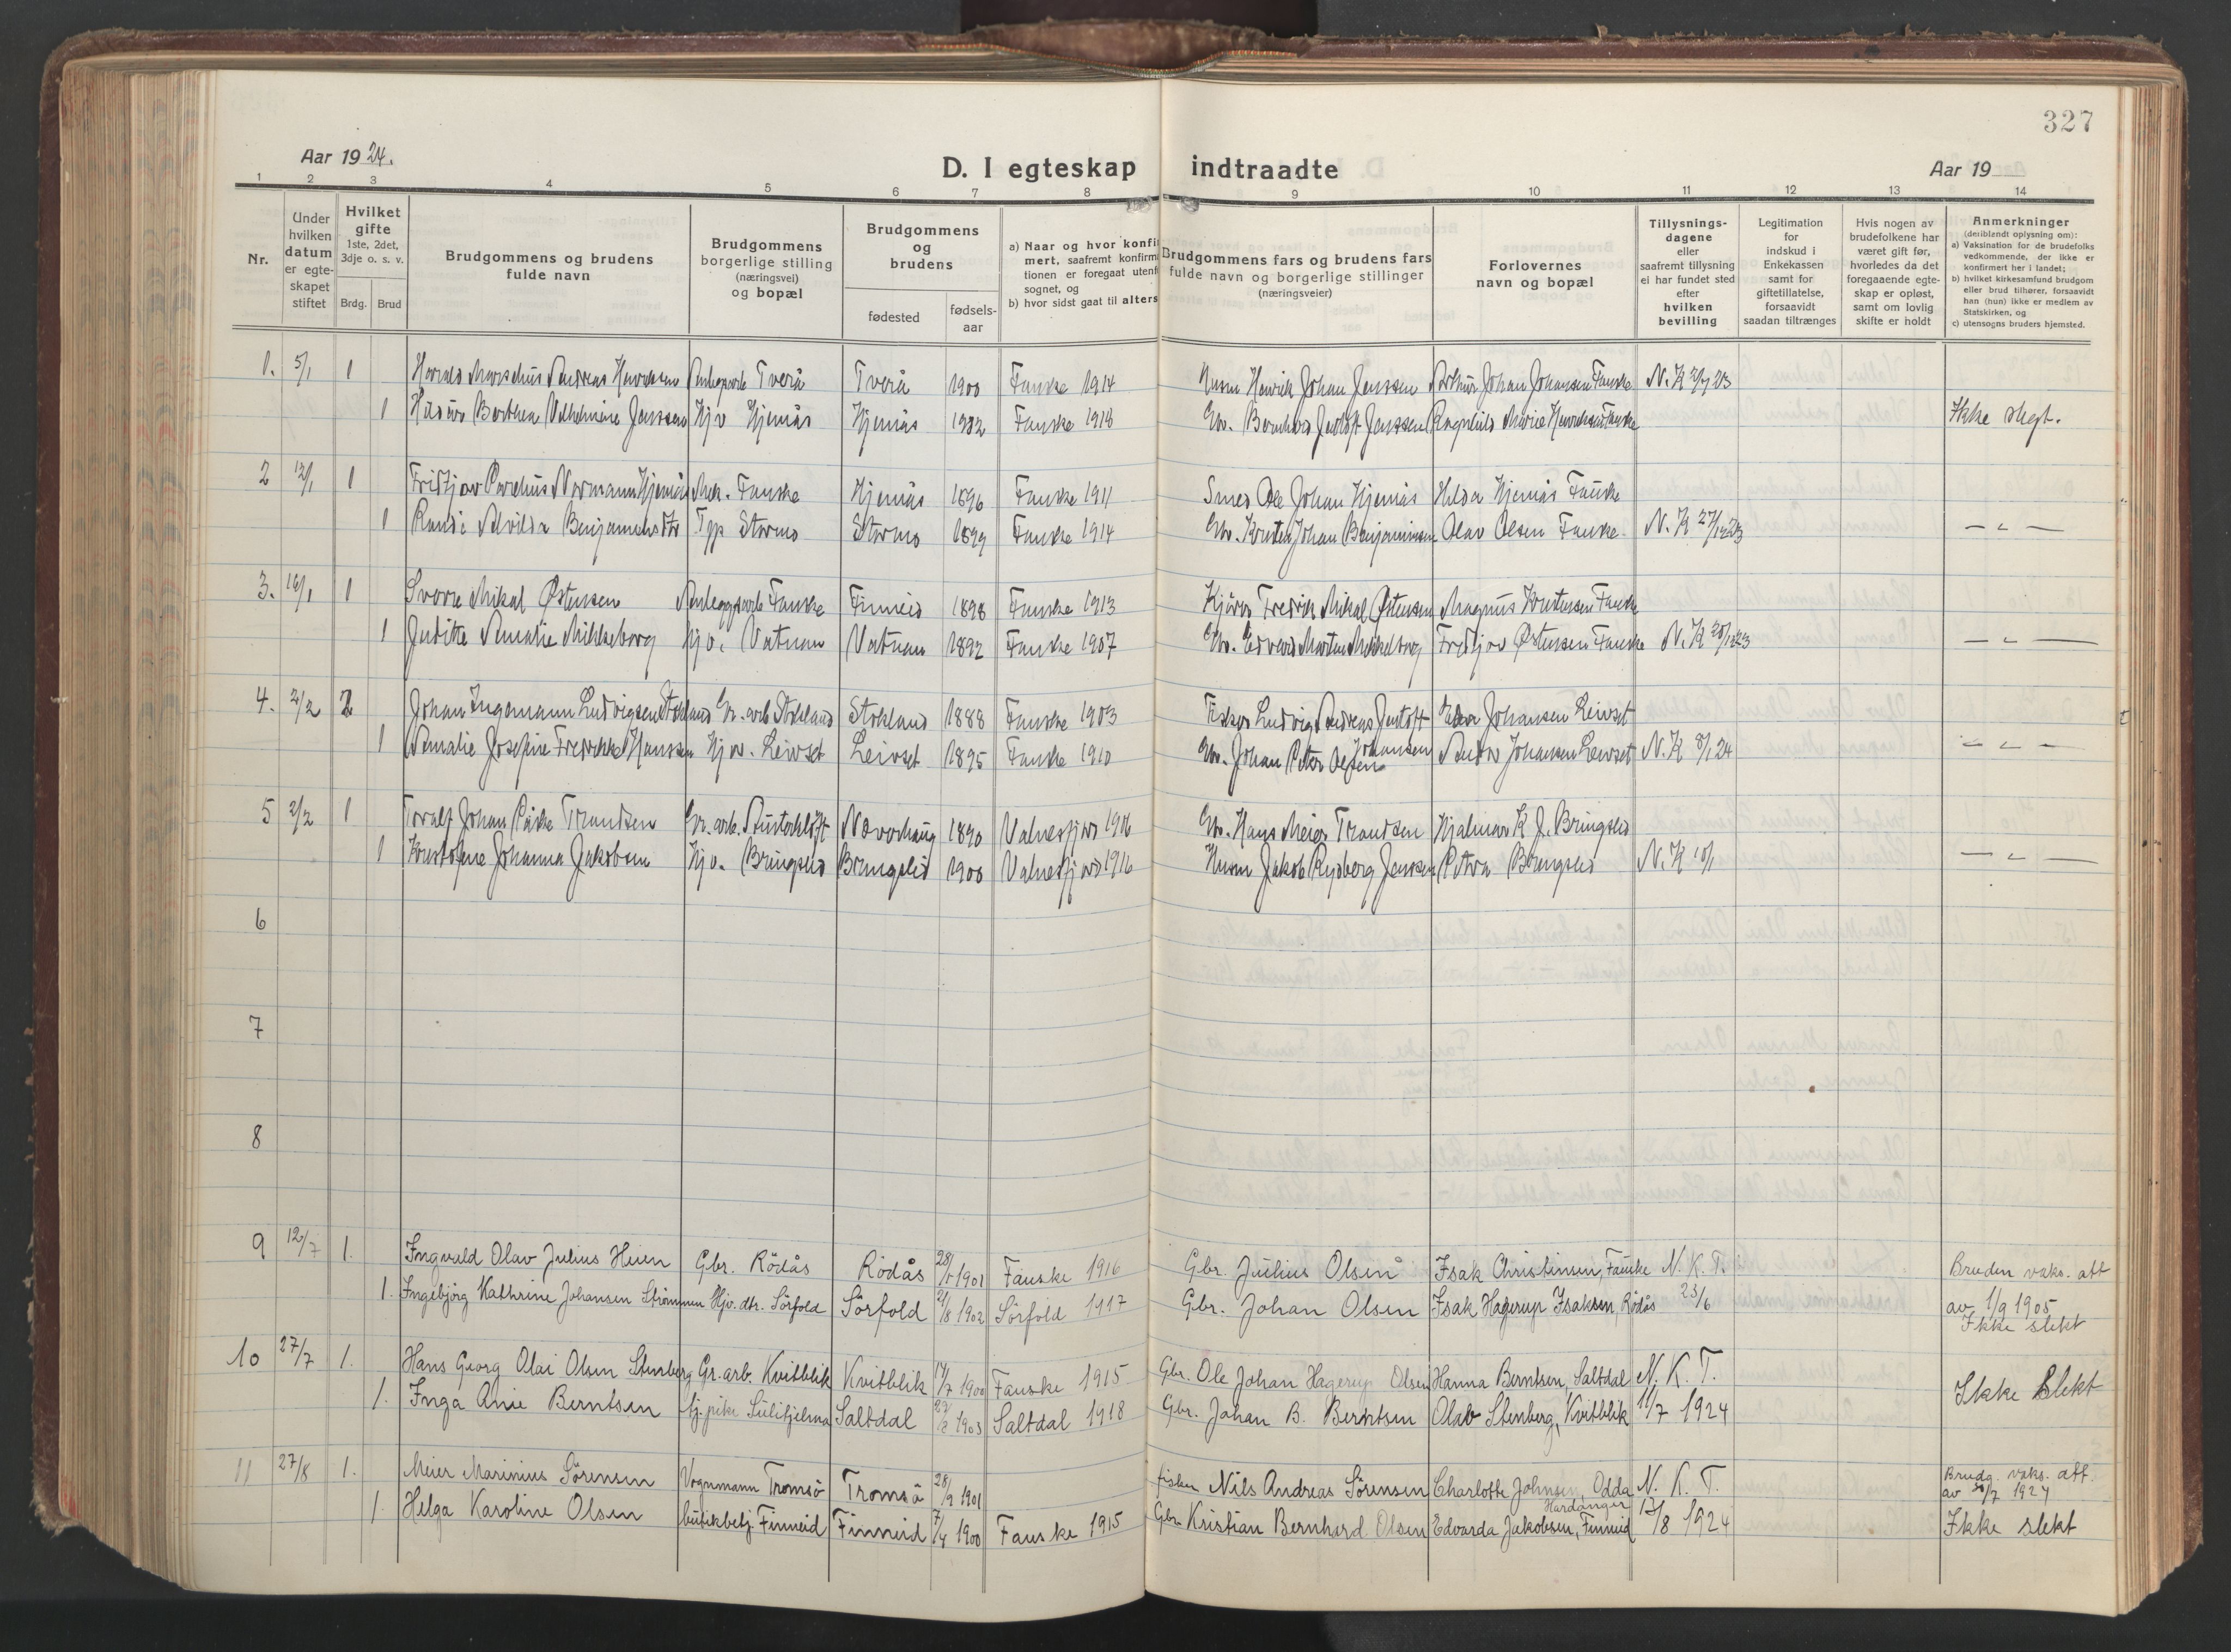 327
Aar 1924.
D. I egteskap indtraadte
Aar 19
1 2 3 4 5 6 7 8 9 10 11 12 13 14
Nr.
Under hvilken datum er egte-skapet stiftet
Hvilket gifte 1ste, 2det, 3dje o. s. v.
Brdg. Brud
Brudgommens og brudens fulde navn
Brudgommens borgerlige stilling (næringsvei) og bopæl
Brudgommens og brudens
fødested
fødsels-aar
a) Naar og hvor konfi
mert, saafremt konfirm
tionen er foregaat utenf
sognet, og
b) hvor sidst gaat til alters
Brudgommens fars og brudens fars
fulde navn og borgerlige stillinger
(næringsveier)
Forlovernes navn og bopæl
Tillysnings-dagene eller saafremt tillysning ei har fundet sted efter hvilken bevilling
Legitimation for indskud i Enkekassen samt for giftetillatelse, forsaavidt saadan tiltrænges
Hvis nogen av brudefolkene har været gift før, hvorledes da det foregaaende egte-skap er opløst, samt om lovlig skifte er holdt
Anmerkninger
(deriblandt oplysning om):
a) Vaksination for de brudefolks vedkommende, der ikke er konfirmert her i landet;
b) hvilket kirkesamfund brudgom eller brud tilhører, forsaavidt han (hun) ikke er medlem av Statskirken, og
c) utensogns bruders hjemsted.
1. 5/1 1 Harald Marselius Andreas Henriksen Anlegsarb Tverå Tverå 1900 Fauske 1914 Husm Henrik Johan Jenssen Arthur Johan Johansen Fauske N. K
1 Berthea Vilhelmine Jenssen Hjv Hjemås Hjemås 1902 Fauske 1918 Gbr. Bernhard Jentoft Jenssen Ragnhild Marie Henriksen Fauske Ikke slegt.
2 12/1 1 Fridtjov Parelius Normann Hjemås Mek. Fauske Hjemås 1896 Fauske 1911 Smed Ole Johan Hjemås Hilda Hjemås Fauske
1 Randi Alvilda Benjamins dtr Tjp Stormo Stormo 1899 Fauske 1914 Gbr. Johan Benjaminsen Olav Olsen Fauske. N. K 27/12 23 — „ —
3. 16/1 1 Sverre Mikal Østensen Anleggsarb Fauske Finneid 1898 Fauske 1913 Fredrik Mikal Østensen Magnus Kristensen Fauske
1 Juditte Amalie Mikkelborg Hjv. Vatnan Vatnan 1892 Fauske 1907 Gbr. Edvard Martin Mikkelborg Fridtjov Østensen Fauske N. K 28/12 23 — „ —
4. 2/2 2 Johan Ingemann Ludvigsen Stokland Gr. arb Stokland Stokland 1888 Fauske 1903 Fisker Ludvig Andreas Jentoft Johansen Leivset
1 Amalie Josefine Fredrikke Hanssen Hjv. Leivset Leivset 1895 Fauske 1910 Gbr. Johan Peter Olsen Johansen Johansen Leivset N. K 8/1 24 — „ —
5 2/2 1 Toralf Johan Påske Trondsen Gr. arb. Novorhaug 1890 Valnesfjord 1906 Gbr. Hans Meier Trondsen Hjalmar K J. Bringsli
1 Kristofine Johanna Jakobsen Hjv. Bringsli Bringsli 1900 Valnesfjord 1916 Husm Jakob Rydberg Jenssen Petra Bringsli N. K 10/1 — „ —
6
7
8
9 12/7 1. Ingvald Olav Julius Heien Gbr. Rödås Rödås 28/ 1901 Fauske 1916 Gbr. Julius Olsen Isak Christinsen, Fauske N. K. T. Bruden vaks. att
1. Ingebjörg Kathrine Johansen Strömmen Hjv. dtr. Sörfold Sörfold 21/8 1902 Sörfold 1917 Gbr. Johan Olsen Isak Hagerup Isaksen, Rödås 23/6 av 1/9 1905
Ikke slekt
10 27/7 1. Hans Georg Olai Olsen Stenberg Gr. arb. Kvitblik Kvitblik 17/7 1900 Fauske 1915 Gbr. Ole Johan Hagerup Olsen Hanna Berntsen, Saltdal N. K. T. Ikke slekt
1. Inga Anie Berntsen tj. pike Sulitjelma Saltdal 1903 Saltdal 1918 Gbr. Johan B. Berntsen Olav Stenberg, Kvitblik 11/7 1924
11 27/8 1. Meier Marinius Sörensen Vognmann Tromsö Tromsö 28/9 1901 fisker Nils Andreas Sörensen Charlotte Johnsen, Odda Hardanger N. K. T. Brudg. vaks. att. av 30/7 1924
1. Helga Karoline Olsen butikbetj. Finneid Finneid 7/4 1900 Fauske 1915 Gbr Kristian Bernhard Olsen Edvarda Jakobsen, Finneid 13/8 1924 Ikke slekt